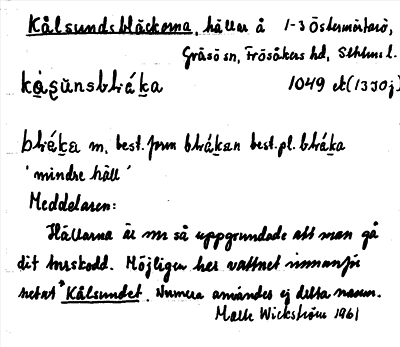 Kålsundsbläckorna, hällar å 1-3 Östermörtarö,
Gräsö sn, Frösåkers hd, Sthlms l.
1049 ek (1330j)
m. best. form best. pl.
'mindre häll'
Meddelaren:
Hällarna är nu så uppgrundade att man gå
dit torrskodd. Möjligen har vattnet innanför
hetat "Kålsundet. Numera användes ej detta namn.
Wickström 1961